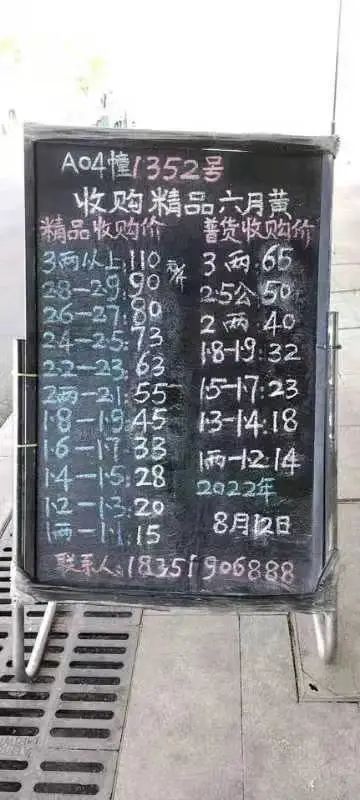 A04幢1352号
收购精品六月黄
精品收购价
3两以上:110
28-29:90
26-27:80
24-25:73
22-23:63
2两-21:55
1.8-1.9:45
1.6-1.7:33
1.4-1.5:28
1.2-1.3:20
1两-1.1:15
普货收购价
3两:65
2.5公50
2两:40
1.8-1.9:32
1.5-1.7:23
1.3-1.4:18
1两-1.2 14
2022年
8月12日
联系人:18351906888